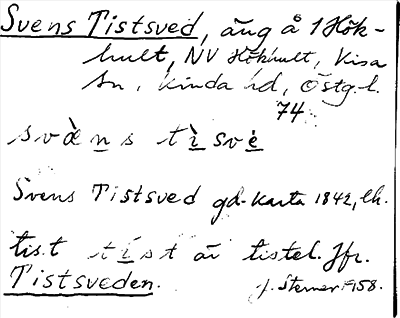 Svens Tistsved, äng å 1 Hök-
hult, NV Hökhult, Kisa
sn, Kinda hd, Östg.l.
74
svæ̀ns tìsvè
Svens Tistsved gd-karta 1842, ek.
tist tìst är tistel. Jfr.
Tistsveden.
J. Sterner 1958.